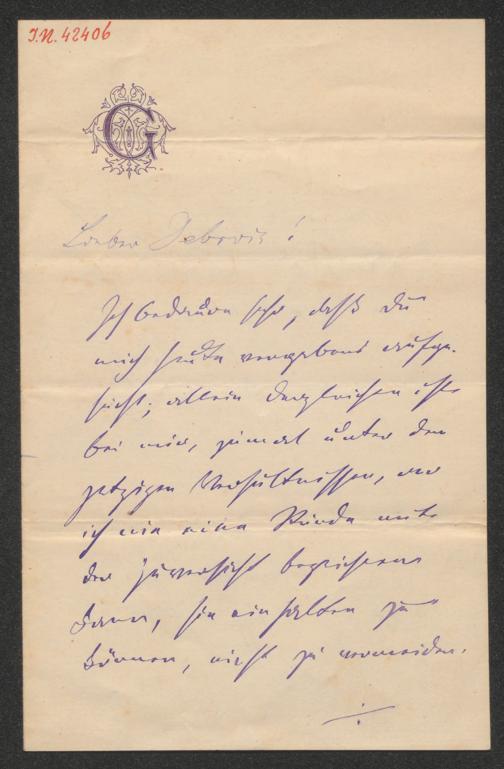 I.N. 42406
G
Lieber Debrois!
Ich bedaure sehr, daß du
mich heute vergebens aufge-
sucht; allein dergleichen ist
bei mir, zumal unter den
jetzigen Verhältnissen, wo
ich nie eine Stunde mit
der Zuversicht bezeichnen
kann, sie einhalten zu
können, nicht zu vermeiden.